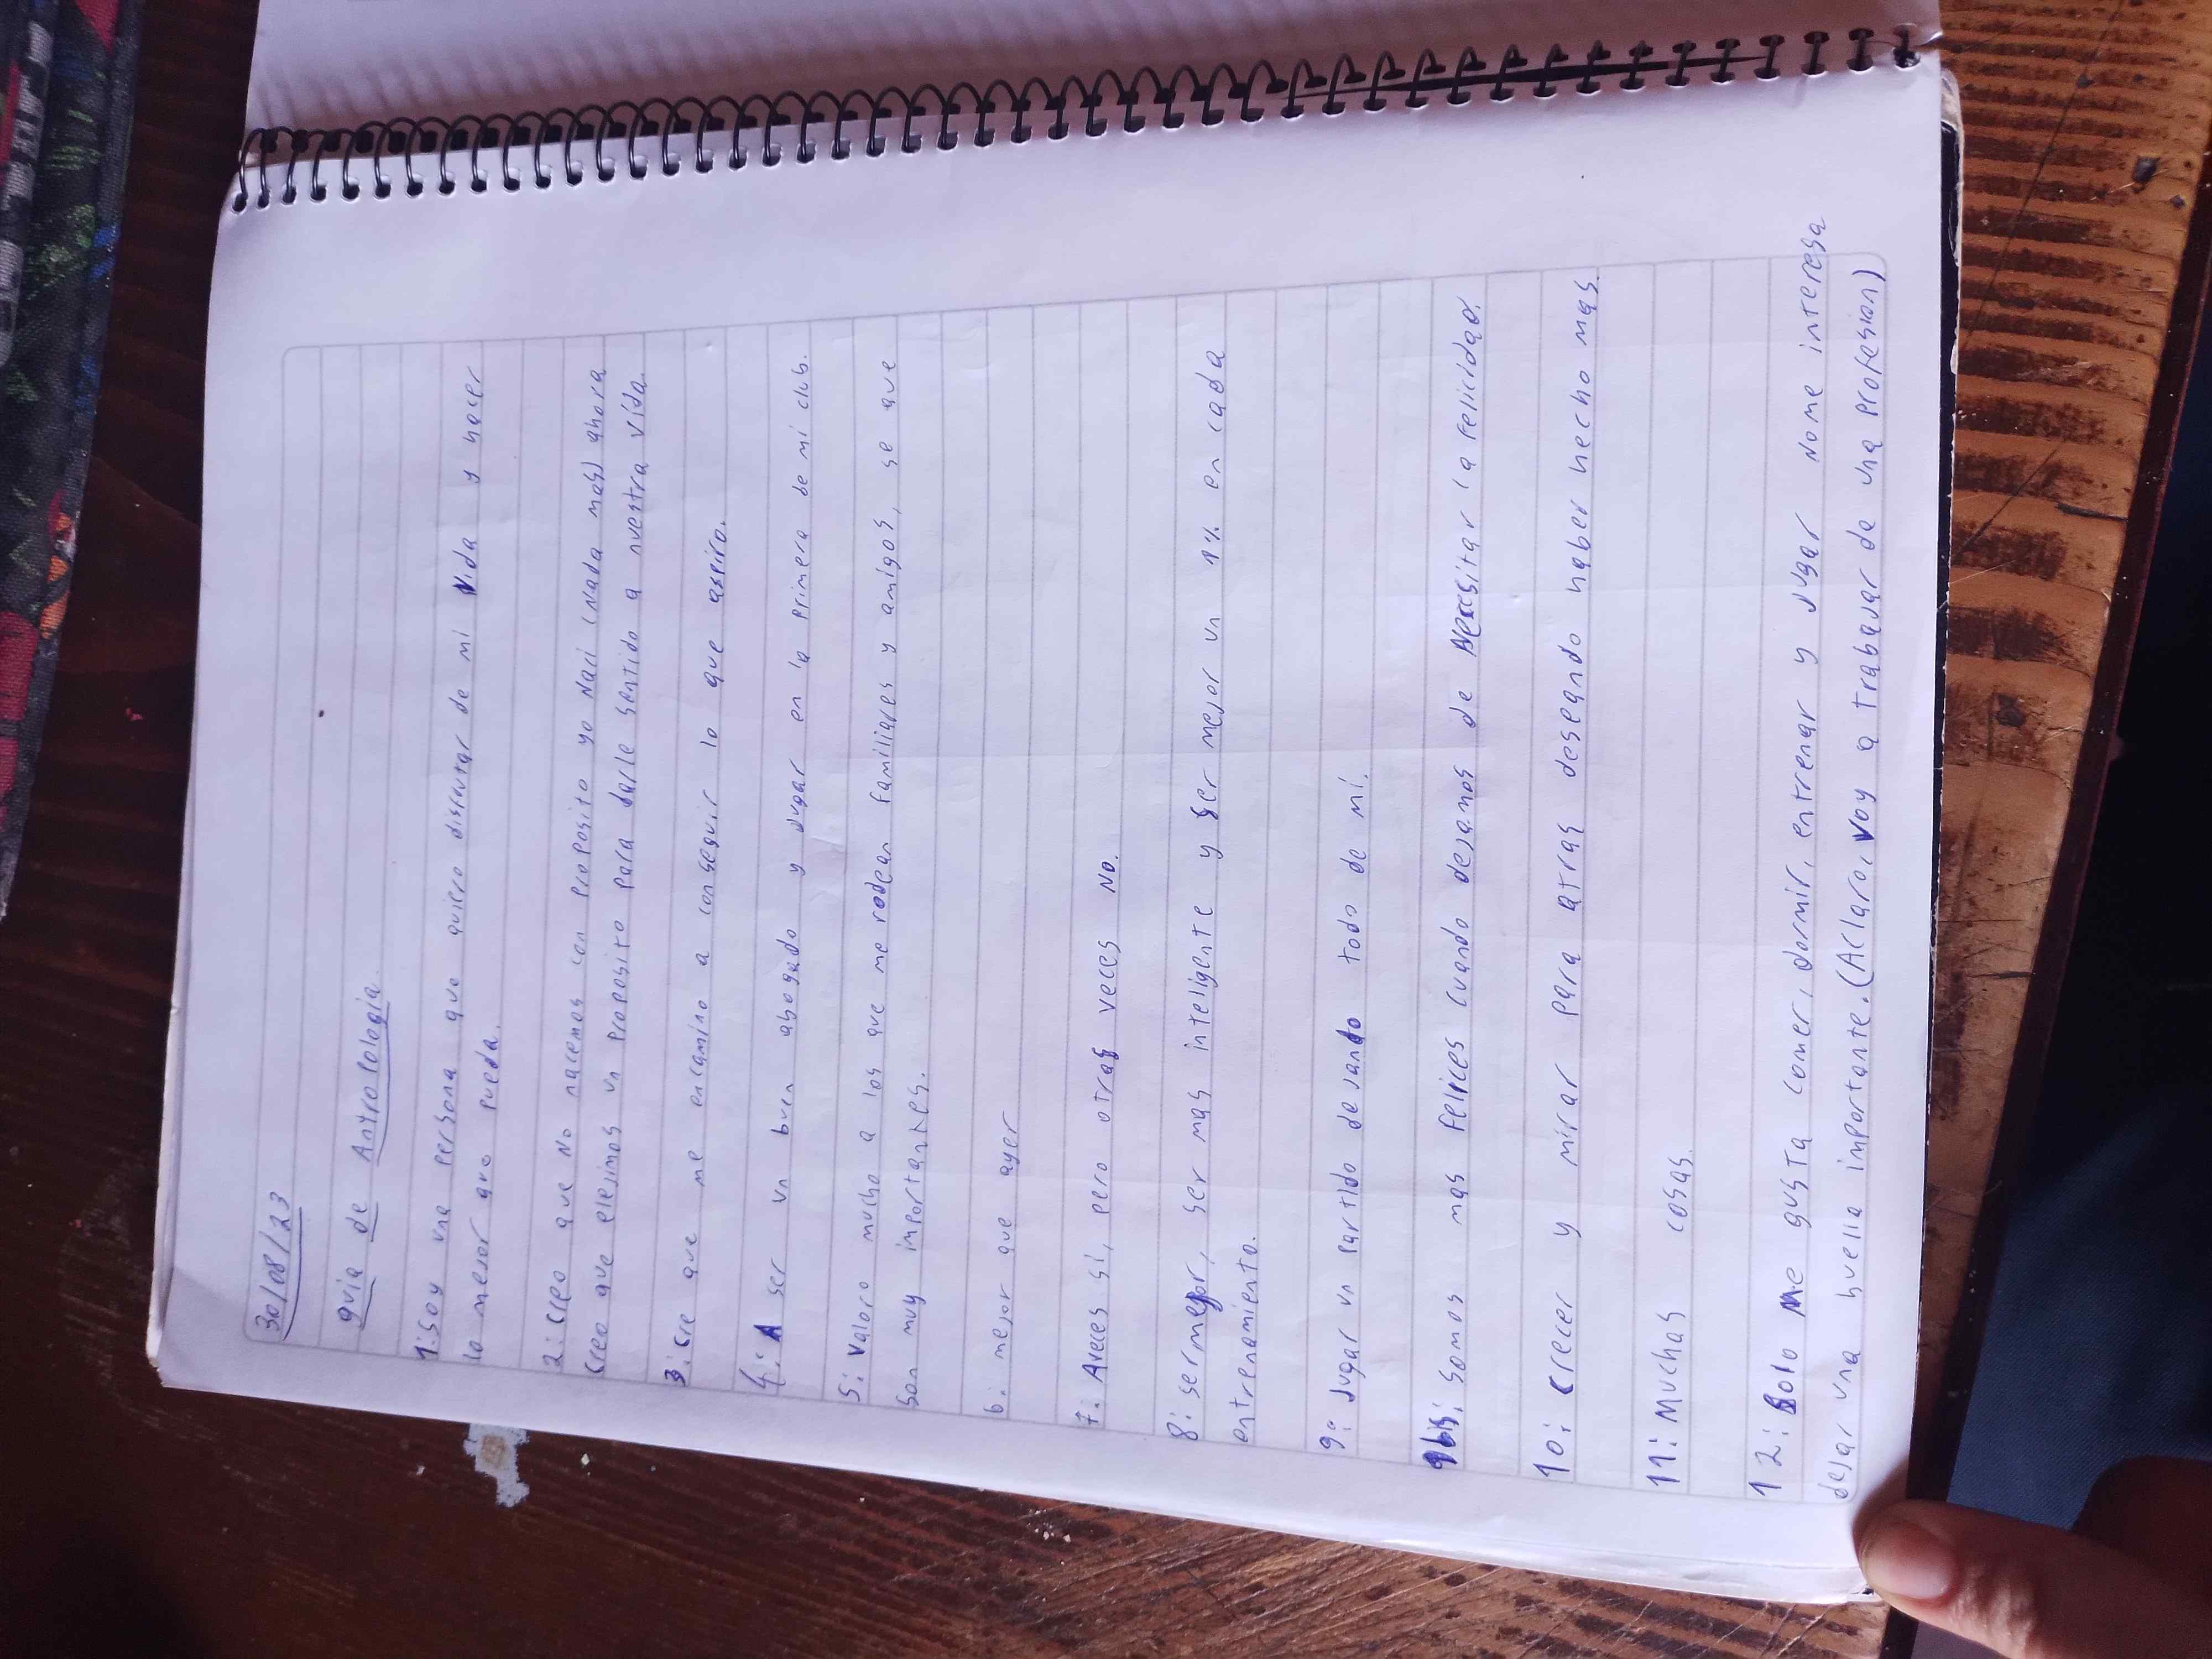 30/08/23
guia de Antropologia.
1: Soy una persona que quiero disfrutar de mi Vida y hacer
lo mejor que pueda.
2: Creo que No nacemos con proposito yo Naci (Nada mas) ahora
Creo que elejimos un proposito para darle sentido a nuestra vida.
3: Cre que me encamino a conseguir lo que aspiro.
4: A ser un buen abogado y Jugar en la primera de mi club.
5: Valoro mucho a los que me rodean familiares y amigos, se que
Son muy importantes.
6: mejor que ayer
7: Aveces si, pero otras veces No.
8: ser mejor, ser mas inteligente y ser mejor un 1% en cada
entrenamiento.
9: Jugar un partido dejando todo de mi.
9bis: Somos mas felices cuando dejamos de Necesitar la felicidad.
10: Crecer y mirar para atras deseando haber hecho mas.
11: Muchas cosas.
12: Solo Me gusta comer, dormir, entrenar y Jugar Nome interesa
dejar una huella importante. (Aclaro, Voy a trabajar de una profesion)